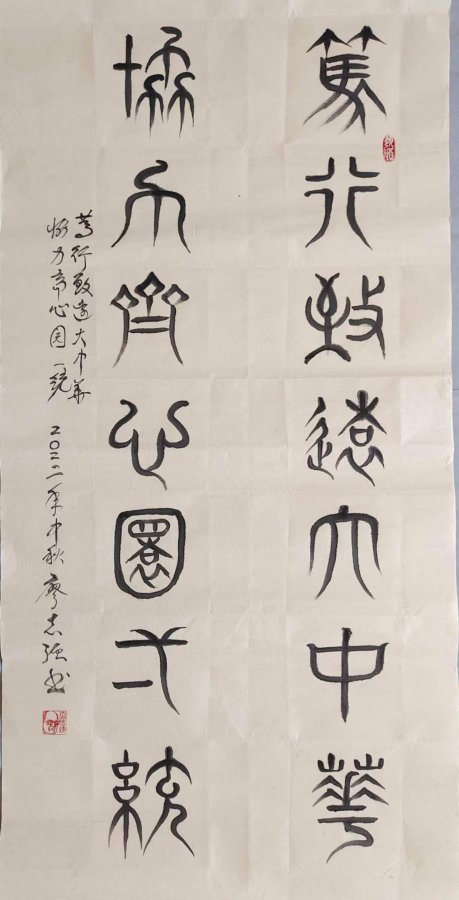 篤行致遠大中華
協力齊心圆弌統
篤行致遠大中華
协力齐心园一统 二〇二二年中秋 廖志强书